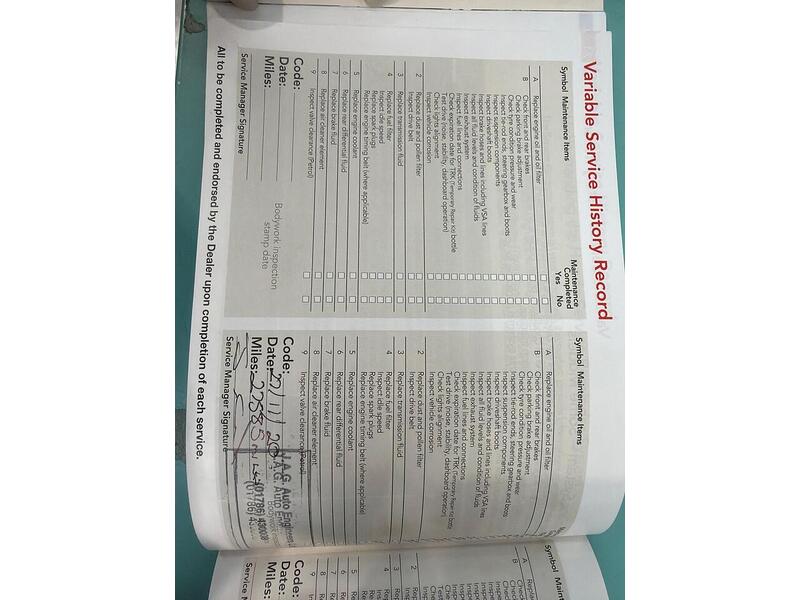 Variable Service History Record
Symbol Maintenance Items
Maintenance
Completed
Yes No
A Replace engine oil and oil filter
B Check front and rear brakes
Check parking brake adjustment
Check tyre condition pressure and wear
Inspect tie-rod ends, steering gearbox and boots
Inspect suspension components
Inspect driveshaft boots
Inspect brake hoses and lines including VSA lines
Inspect all fluid levels and condition of fluids
Inspect exhaust system
Inspect fuel lines and connections
Check expiration date for TRK (Temporary Repair Kit) bottle
Test drive (noise, stability, dashboard operation)
Check lights alignment
Inspect vehicle corrosion
2 Replace dust and pollen filter
Inspect drive belt
3 Replace transmission fluid
4 Replace fuel filter
Inspect idle speed
Replace spark plugs
Replace engine timing belt (where applicable)
5 Replace engine coolant
6 Replace rear differential fluid
7 Replace brake fluid
8 Replace air cleaner element
9 Inspect valve clearance (Petrol)
Code:
Date:
Miles:
Bodywork inspection
stamp date
Service Manager Signature
Symbol Maintenance Items
A Replace engine oil and oil filter
B Check front and rear brakes
Check parking brake adjustment
Check tyre condition pressure and wear
Inspect tie-rod ends, steering gearbox and boots
Inspect suspension components
Inspect driveshaft boots
Inspect brake hoses and lines including VSA lines
Inspect all fluid levels and condition of fluids
Inspect exhaust system
Inspect fuel lines and connections
Check expiration date for TRK (Temporary Repair Kit) bottle
Test drive (noise, stability, dashboard operation)
Check lights alignment
Inspect vehicle corrosion
2 Replace dust and pollen filter
Inspect drive belt
3 Replace transmission fluid
4 Replace fuel filter
Inspect idle speed
Replace spark plugs
Replace engine timing belt (where applicable)
5 Replace engine coolant
6 Replace rear differential fluid
7 Replace brake fluid
8 Replace air cleaner element
9 Inspect valve clearance (Petrol)
Code:
Date:
Miles:
J.A.G. Auto Engineers
(01786) 430008
Service Manager Signature
All to be completed and endorsed by the Dealer upon completion of each service.
Symbol
A
B
2
3
4
5
6
7
8
9
Code:
Date:
Miles: